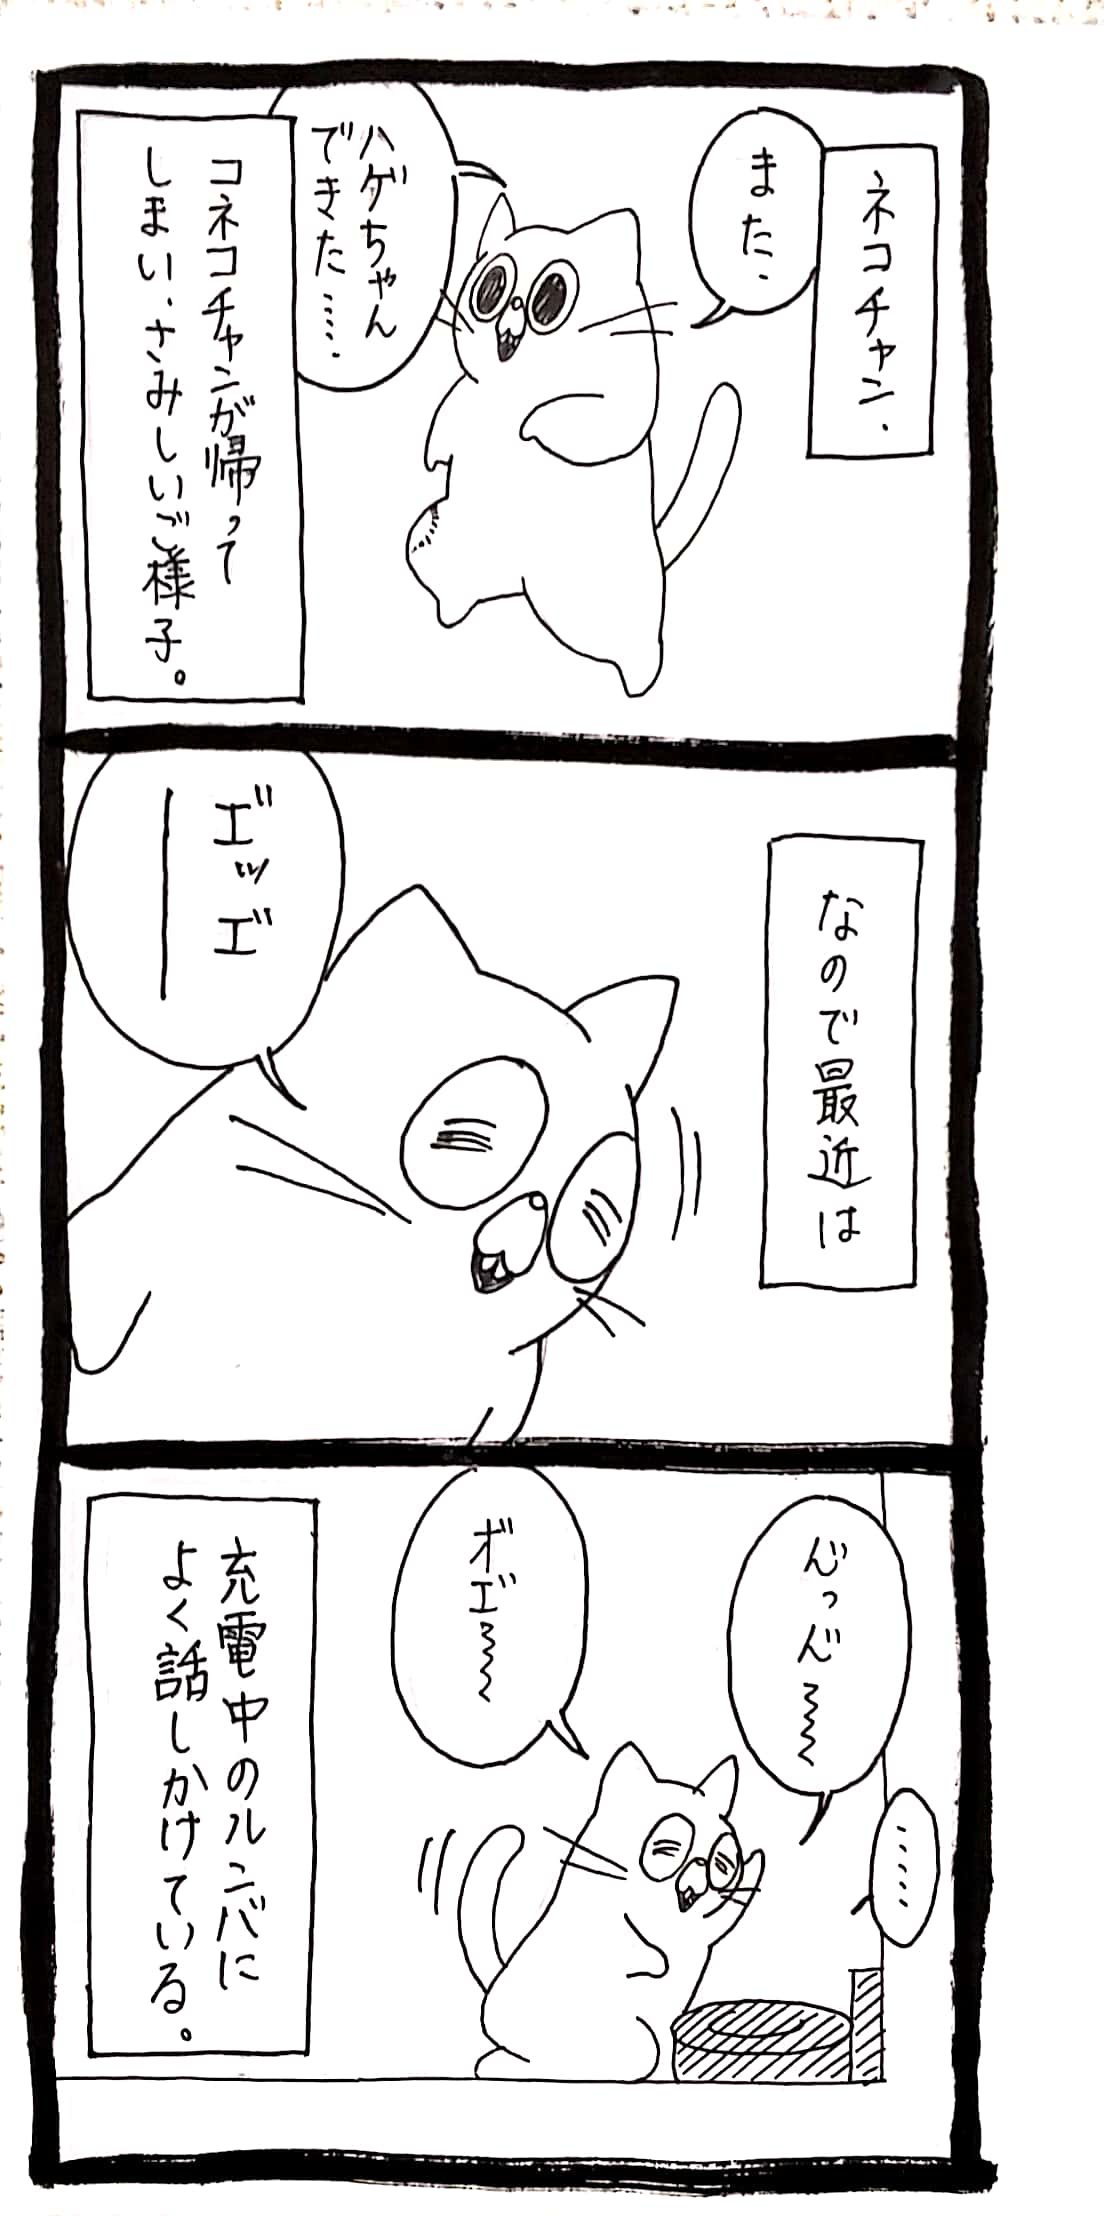 ネコチャン、
また、
ハゲちゃん
できた……。
コネコチャンが帰って
しまい、さみしいご様子。
なので最近は
エ゛ッエ゛
ー
ん゛っん゛〜〜〜
オ゛エ゛〜〜〜
……
充電中のルンバに
よく話しかけている。